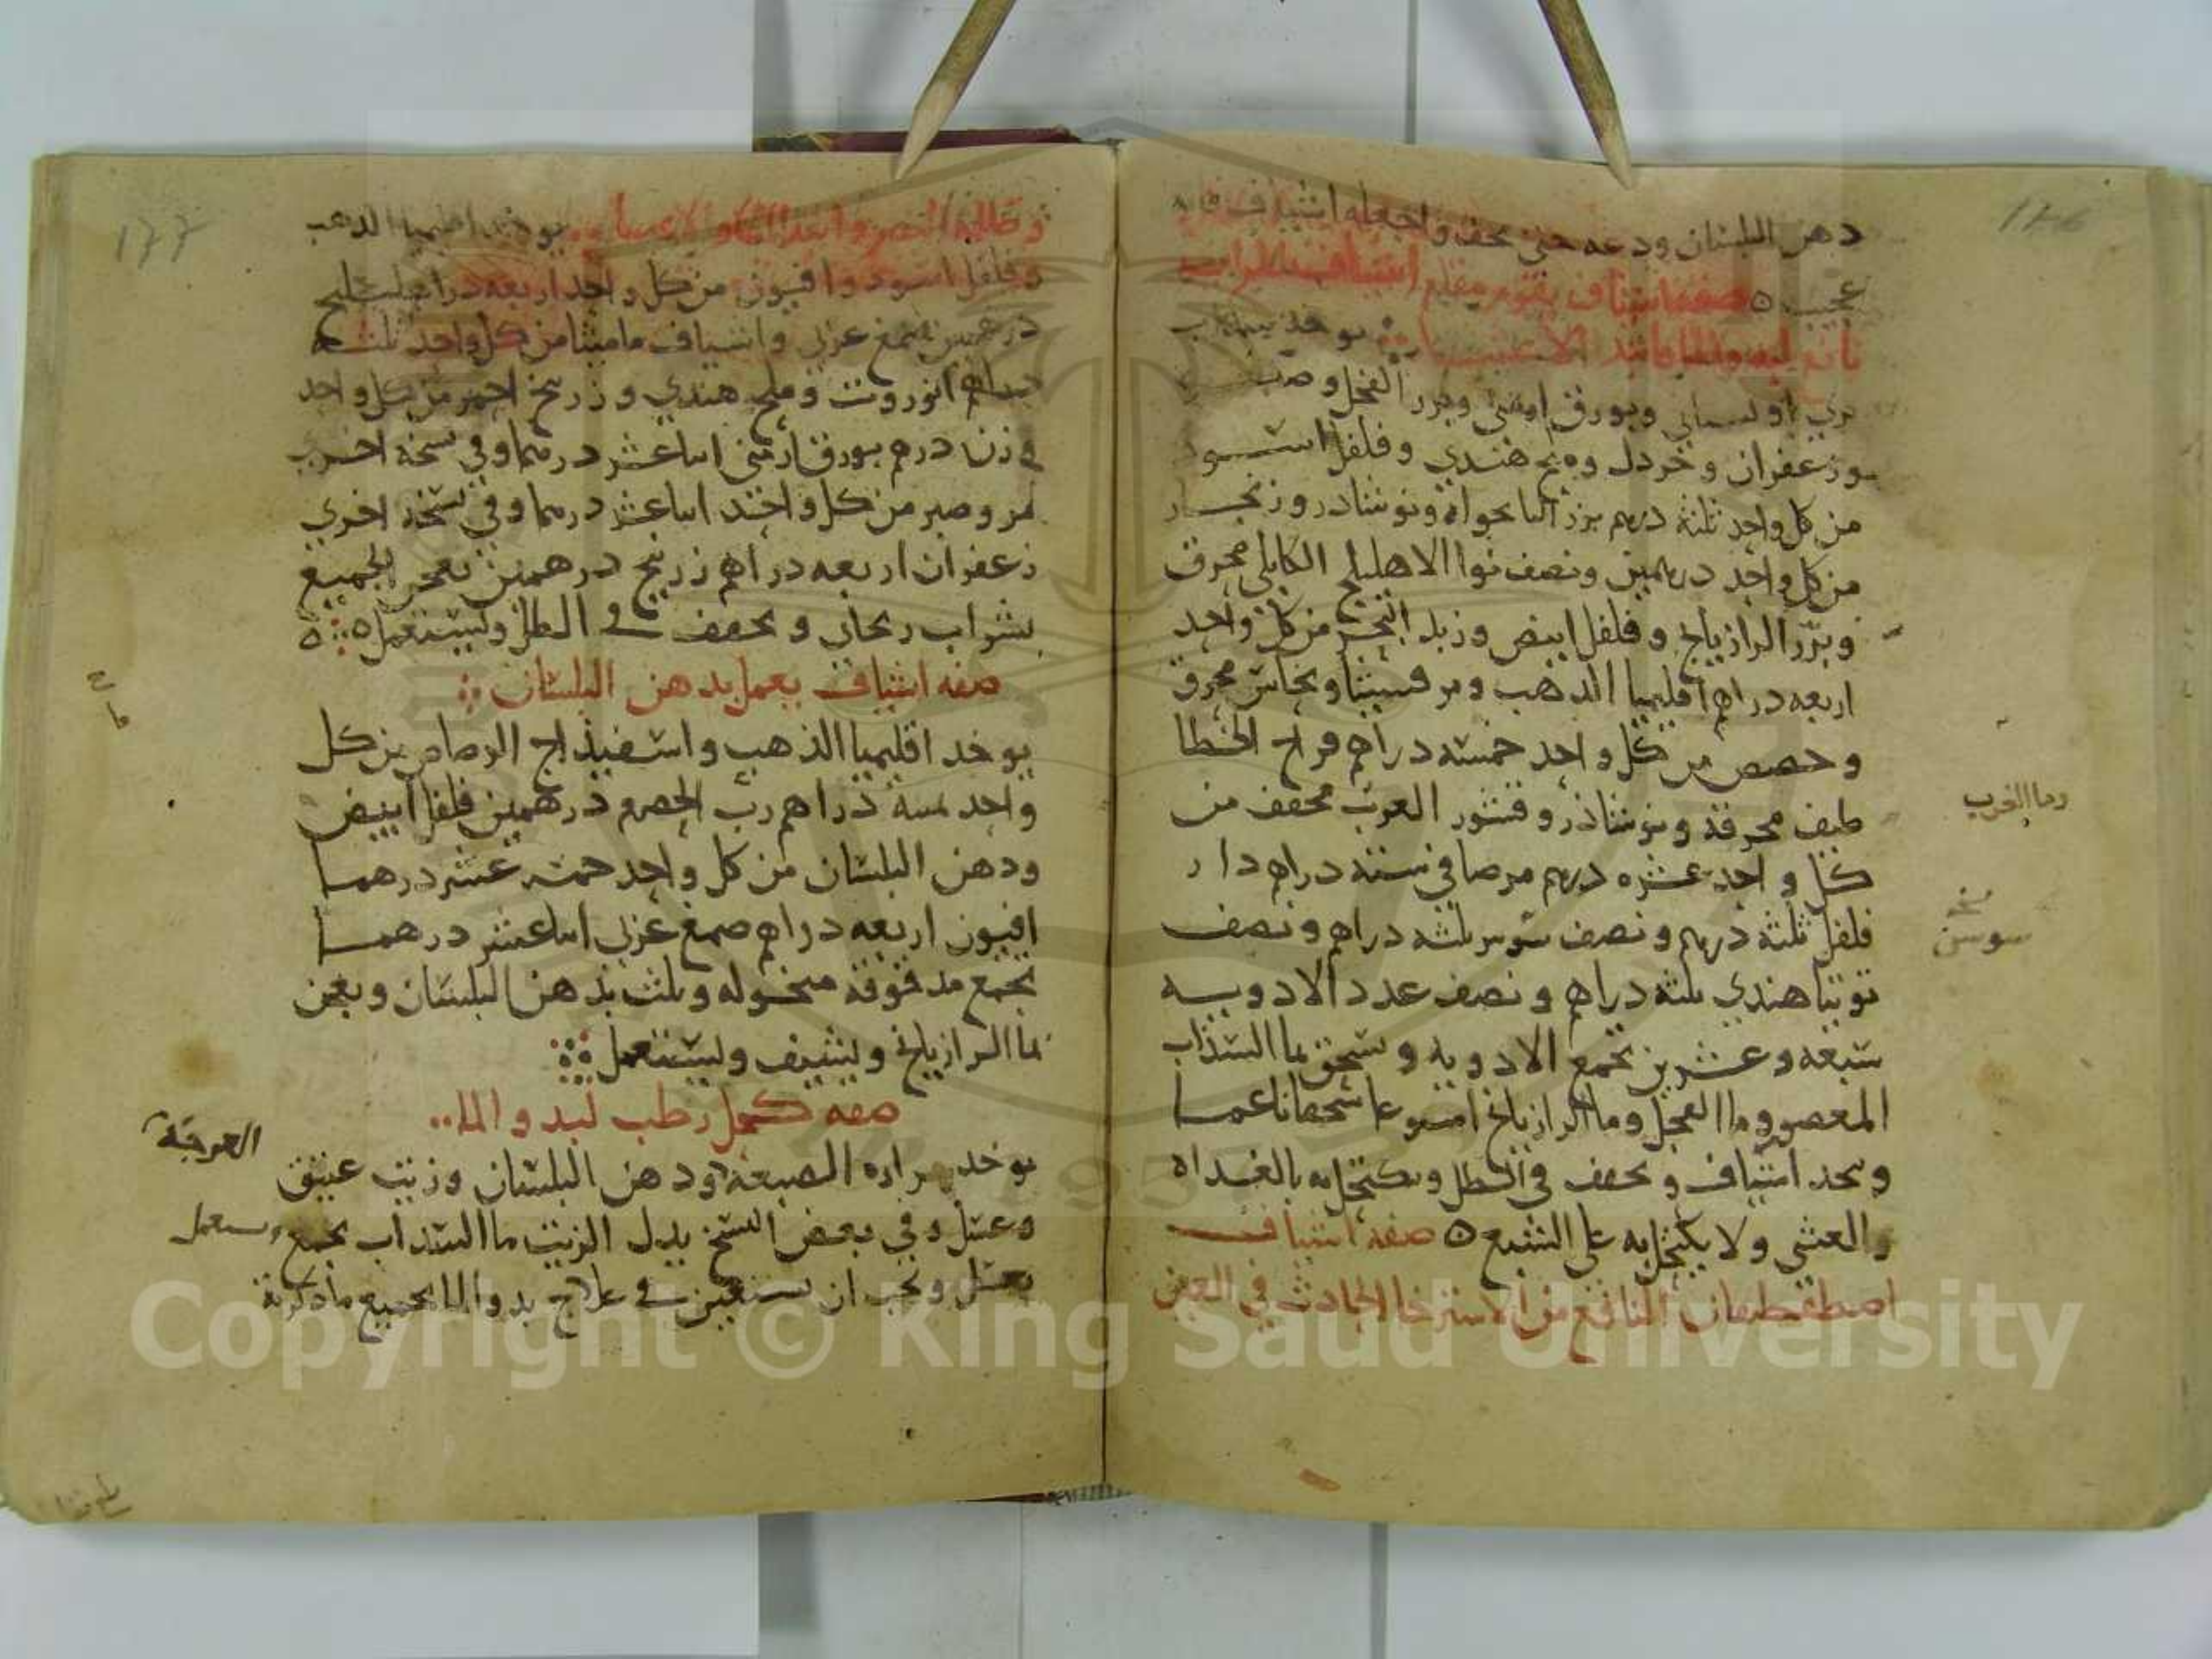 دهن البلسان ودعه حتى يجف واجعله اشياف فانه
عجيب ٥ صفة اشياف يقوم مقام اشياف المرارات
نافع لبدو الماء
بري او لساني وبورق ارمني وبزر الفجل وصبر
وزعفران وخردل وملح هندي وفلفل اسود
من كل واحد ثلثة درهم بزر النانخواه ونوشادر وزنجار
من كل واحد درهمين ونصف نوا الاهليلج الكابلي محرق
وبزر الرازيانج وفلفل ابيض وزبد البحر من كل واحد
اربعه دراهم اقليميا الذهب ومرقشيثا ونحاس محرق
وحضض من كل واحد خمسه دراهم فراخ الخطا
طيف محرقة ونوشاذر وقشور الغرب مجفف من
كل واحد عشره درهم مر صافي ستة دراهم دار
فلفل ثلثه درهم ونصف سوس ثلثه دراهم ونصف
توتيا هندي ثلثه دراهم ونصف عدد الادويه
سبعه وعشرين تجمع الادويه وتسحق بما السذاب
المعصور وما الفجل وما الرازيانج اسبوعا سحقا ناعما
ويتخذ اشياف ويجفف في الظل ويكتحل به بالغداه
والعشي ولا يكتحل به على الشبع ٥ صفه اشياف
اصطفطيقان النافع من الاسترخا الحادث في العين
وما الغرب
نسخه
سوسن
١٧٧
وظلمة البصر وابتدا الماء والاعشا يوخذ اقليميا الذهب
وفلفل اسود وافيون من كل واحد اربعه دراهم
درهمين صمغ عربي واشياف ماميثا من كل واحد ثلثه
دراهم انزروت وملح هندي وزرنيخ احمر من كل واحد
وزن درهم بورق ارمني اثنا عشر درهما وفي نسخة اخرى
مر وصبر من كل واحد اثنا عشر درهما وفي نسخه اخرى
زعفران اربعه دراهم زرنيخ درهمين يعجن الجميع
بشراب ريحاني ويجفف في الظل ويستعمل ٥
صفه اشياف يعمل بدهن البلسان
يوخذ اقليميا الذهب واسفيذاج الرصاص من كل
واحد ستة دراهم رب الحصرم درهمين فلفل ابيض
ودهن البلسان من كل واحد خمسه عشر درهما
افيون اربعه دراهم صمغ عربي اثنا عشر درهما
تجمع مدقوقة منخوله وتلت بدهن البلسان ويعجن
بما الرازيانج ويشيف ويستعمل
صفه كحل رطب لبدو الماء
يوخذ مراره الضبعه ودهن البلسان وزيت عتيق
العرجة
وعسل وفي بعض النسخ بدل الزيت ما السذاب يجمع ويستعمل
بعسل ويجب ان تستعين في علاج بدو الماء بجميع ما ذكرته
Copyright © King Saud University